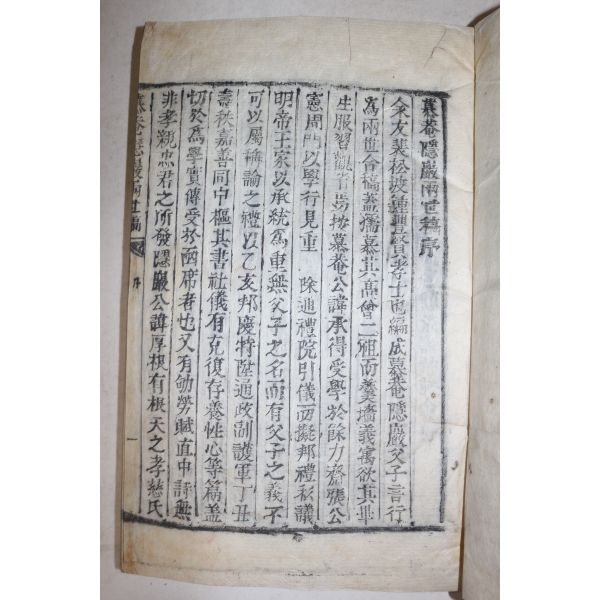 慕菴隱巖兩世稿序
余友裴松波鍾 賢孝士也編成慕菴隱巖父子言行
爲兩世合稿盖孺慕其高曾二祖而羹墻義寓欲其畢
生服習觀省焉按慕菴公諱承得受學於餘力齋張公
憲周門以學行見重 除通禮院引儀而擬邦禮私議
明帝王家以承統爲重無父子之名而有父子之義不
可以屬稱論之禮以乙亥邦慶特陞通政副護軍丁丑
壽秩嘉善同中樞其書社儀有克復存養性心等篇盖
切於爲學實傳受於函席者也又有劬勞賦直中詩無
非孝親忠君之所發隱巖公諱厚根有根天之孝慈氏
慕菴隱巖兩世稿 序 一